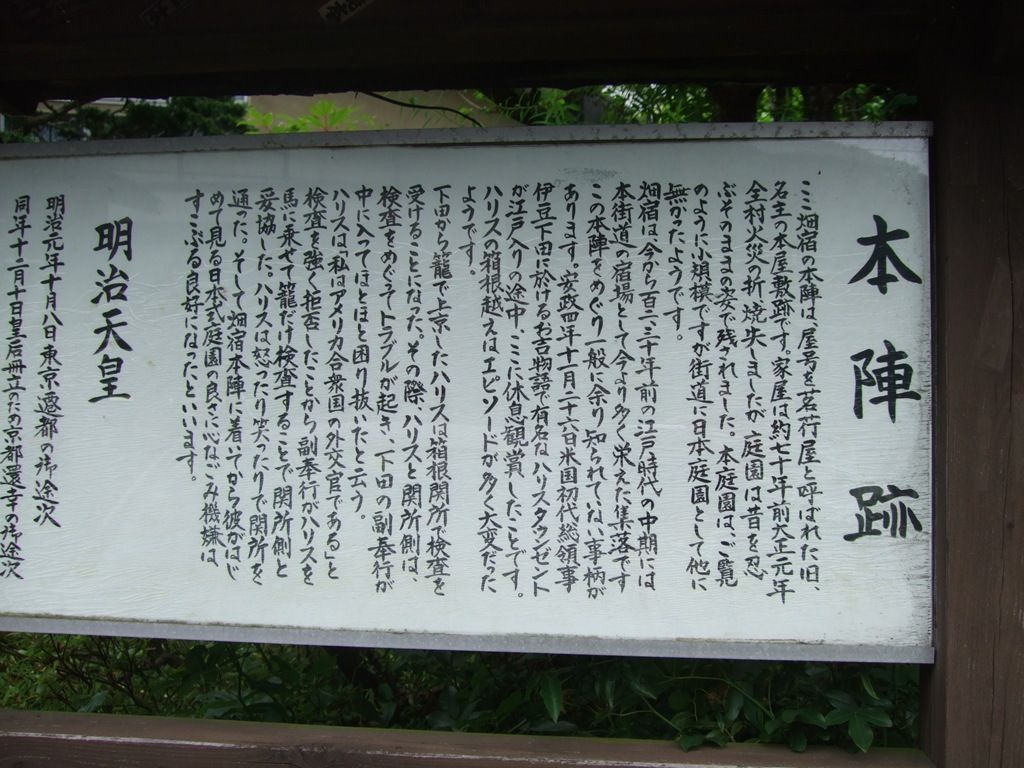 本陣跡
ここ畑宿の本陣は、屋号を茗荷屋と呼ばれた旧、
名主の本屋敷跡です。家屋は約七十年前大正元年
全村火災の折、焼失しましたが、庭園は昔を忍
ぶそのままの姿で残されました。本庭園は、ご覧
のように小規模ですが街道に日本庭園として他に
無かったようです。
畑宿は今から百二、三十年前の江戸時代の中期には
本街道の宿場として今より多く栄えた集落です
この本陣をめぐり一般に余り知られていない事柄が
あります。安政四年十一月二十六日米国初代総領事
伊豆下田に於けるお吉物語で有名なハリスタウゼント
が江戸入りの途中、ここに休息観賞したことです。
ハリスの箱根越えはエピソードが多く大変だった
ようです。
下田から籠で上京したハリスは箱根関所で検査を
受けることになった。その際、ハリスと関所側は、
検査をめぐってトラブルが起き、下田の副奉行が
中に入ってほとほと困り抜いたと云う。
ハリスは「私はアメリカ合衆国の外交官である」と
検査を強く拒否したことから副奉行がハリスを
馬に乗せて籠だけ検査することで関所側と
妥協した。ハリスは怒ったり笑ったりで関所を
通った。そして畑宿本陣に着いてから彼がはじ
めて見る日本式庭園の良さに心なごみ機嫌は
すこぶる良好になったといいます。
明治天皇
明治元年十月八日東京遷都の御途次
同年十二月十日皇后冊立のため京都還幸の御途次